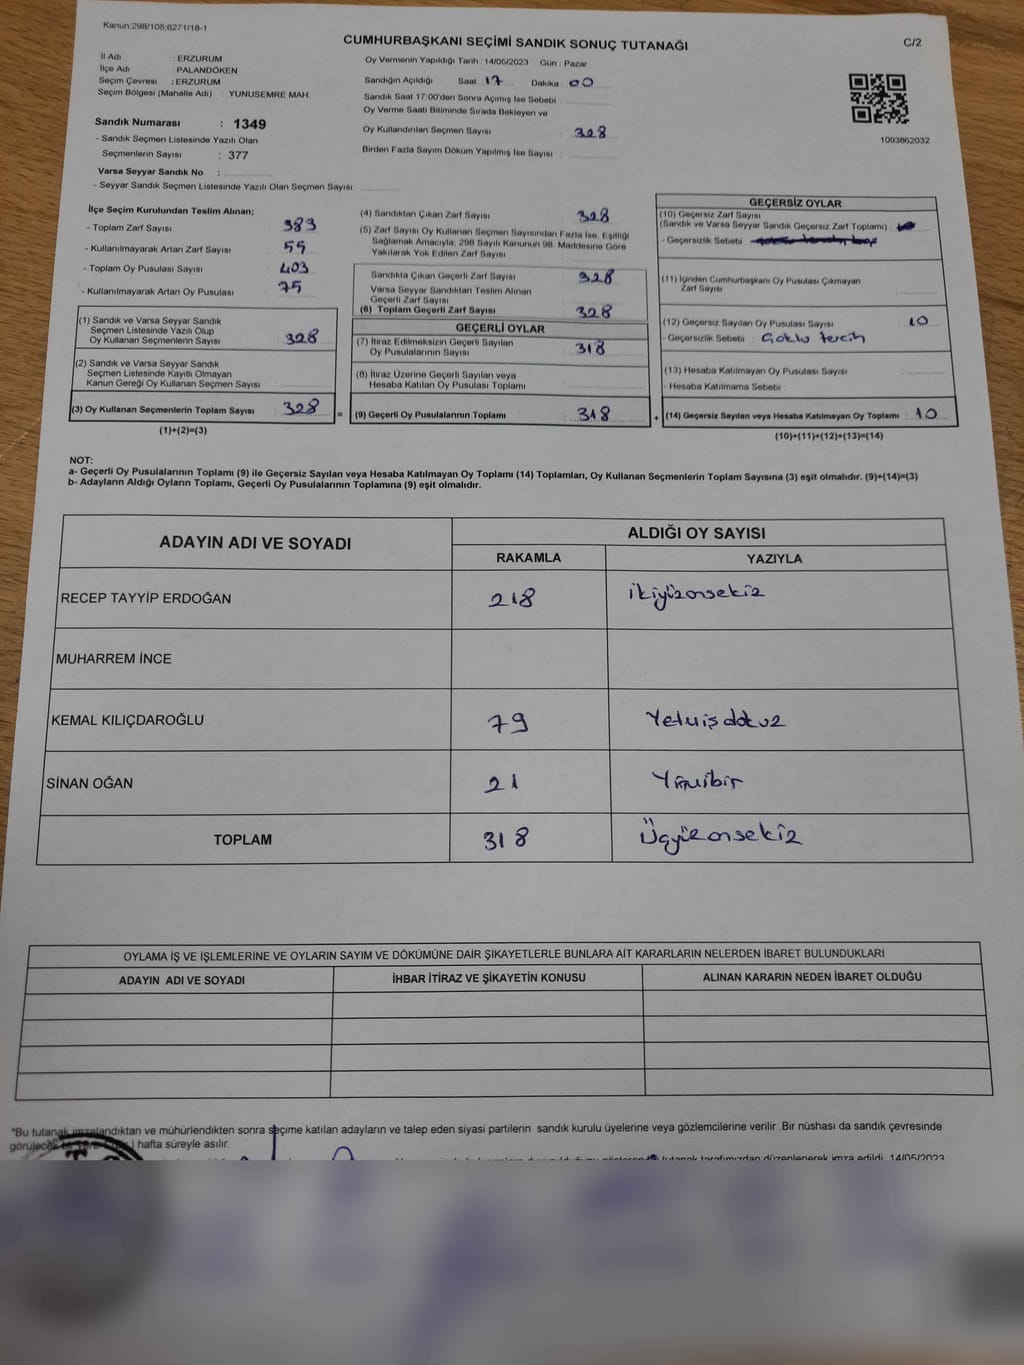 Kanun;298/105;6271/18-1
C/2
CUMHURBAŞKANI SEÇİMİ SANDIK SONUÇ TUTANAĞI
İl Adı : ERZURUM
İlçe Adı : PALANDÖKEN
Seçim Çevresi : ERZURUM
Seçim Bölgesi (Mahalle Adı) : YUNUSEMRE MAH.
Sandık Numarası : 1349
- Sandık Seçmen Listesinde Yazılı Olan
Seçmenlerin Sayısı : 377
Varsa Seyyar Sandık No :
- Seyyar Sandık Seçmen Listesinde Yazılı Olan Seçmen Sayısı:
Oy Vermenin Yapıldığı Tarih : 14/05/2023 Gün : Pazar
Sandığın Açıldığı Saat : 17 Dakika : 00
Sandık Saat 17:00'den Sonra Açımış İse Sebebi :
Oy Verme Saati Bitiminde Sırada Bekleyen ve
Oy Kullandırılan Seçmen Sayısı : 328
Birden Fazla Sayım Döküm Yapılmış İse Sayısı :
1093862032
İlçe Seçim Kurulundan Teslim Alınan;
- Toplam Zarf Sayısı : 383
- Kullanılmayarak Artan Zarf Sayısı : 55
- Toplam Oy Pusulası Sayısı : 403
- Kullanılmayarak Artan Oy Pusulası : 75
(1) Sandık ve Varsa Seyyar Sandık
Seçmen Listesinde Yazılı Olup
Oy Kullanan Seçmenlerin Sayısı : 328
(2) Sandık ve Varsa Seyyar Sandık
Seçmen Listesinde Kayıtlı Olmayan
Kanun Gereği Oy Kullanan Seçmen Sayısı :
(3) Oy Kullanan Seçmenlerin Toplam Sayısı : 328
(1)+(2)=(3)
(4) Sandıktan Çıkan Zarf Sayısı : 328
(5) Zarf Sayısı Oy Kullanan Seçmen Sayısından Fazla İse, Eşitliği
Sağlamak Amacıyla, 298 Sayılı Kanunun 98. Maddesine Göre
Yakılarak Yok Edilen Zarf Sayısı :
Sandıkta Çıkan Geçerli Zarf Sayısı : 328
Varsa Seyyar Sandıktan Teslim Alınan
Geçerli Zarf Sayısı :
(6) Toplam Geçerli Zarf Sayısı : 328
GEÇERLİ OYLAR
(7) İtiraz Edilmeksizin Geçerli Sayılan
Oy Pusulalarının Sayısı : 318
(8) İtiraz Üzerine Geçerli Sayılan veya
Hesaba Katılan Oy Pusulası Toplamı :
= (9) Geçerli Oy Pusulalarının Toplamı : 318
GEÇERSİZ OYLAR
(10) Geçersiz Zarf Sayısı
(Sandık ve Varsa Seyyar Sandık Geçersiz Zarf Toplamı) :
- Geçersizlik Sebebi :
(11) İçinden Cumhurbaşkanı Oy Pusulası Çıkmayan
Zarf Sayısı :
(12) Geçersiz Sayılan Oy Pusulası Sayısı : 10
- Geçersizlik Sebebi : Çoklu tercih
(13) Hesaba Katılmayan Oy Pusulası Sayısı :
- Hesaba Katılmama Sebebi :
+ (14) Geçersiz Sayılan veya Hesaba Katılmayan Oy Toplamı : 10
(10)+(11)+(12)+(13)=(14)
NOT:
a- Geçerli Oy Pusulalarının Toplamı (9) ile Geçersiz Sayılan veya Hesaba Katılmayan Oy Toplamı (14) Toplamları, Oy Kullanan Seçmenlerin Toplam Sayısına (3) eşit olmalıdır. (9)+(14)=(3)
b- Adayların Aldığı Oyların Toplamı, Geçerli Oy Pusulalarının Toplamına (9) eşit olmalıdır.
ADAYIN ADI VE SOYADI ALDIĞI OY SAYISI
RAKAMLA YAZIYLA
RECEP TAYYİP ERDOĞAN 218 ikiyüzonsekiz
MUHARREM İNCE
KEMAL KILIÇDAROĞLU 79 Yetmişdokuz
SİNAN OĞAN 21 Yirmibir
TOPLAM 318 Üçyüzonsekiz
OYLAMA İŞ VE İŞLEMLERİNE VE OYLARIN SAYIM VE DÖKÜMÜNE DAİR ŞİKAYETLERLE BUNLARA AİT KARARLARIN NELERDEN İBARET BULUNDUKLARI
ADAYIN ADI VE SOYADI İHBAR İTİRAZ VE ŞİKAYETİN KONUSU ALINAN KARARIN NEDEN İBARET OLDUĞU
"Bu tutanak imzalandıktan ve mühürlendikten sonra seçime katılan adayların ve talep eden siyasi partilerin sandık kurulu üyelerine veya gözlemcilerine verilir .Bir nüshası da sandık çevresinde
görülecek hafta süreyle asılır.
tutanak tarafımızdan düzenlenerek imza edildi. 14/05/2023